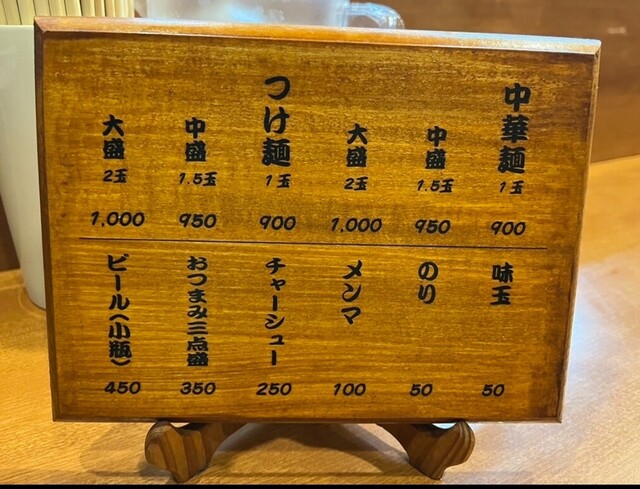 中華麺 1玉 900
中盛 1.5玉 950
大盛 2玉 1,000
つけ麺 1玉 900
中盛 1.5玉 950
大盛 2玉 1,000
味玉 50
のり 50
メンマ 100
チャーシュー 250
おつまみ三点盛 350
ビール(小瓶) 450